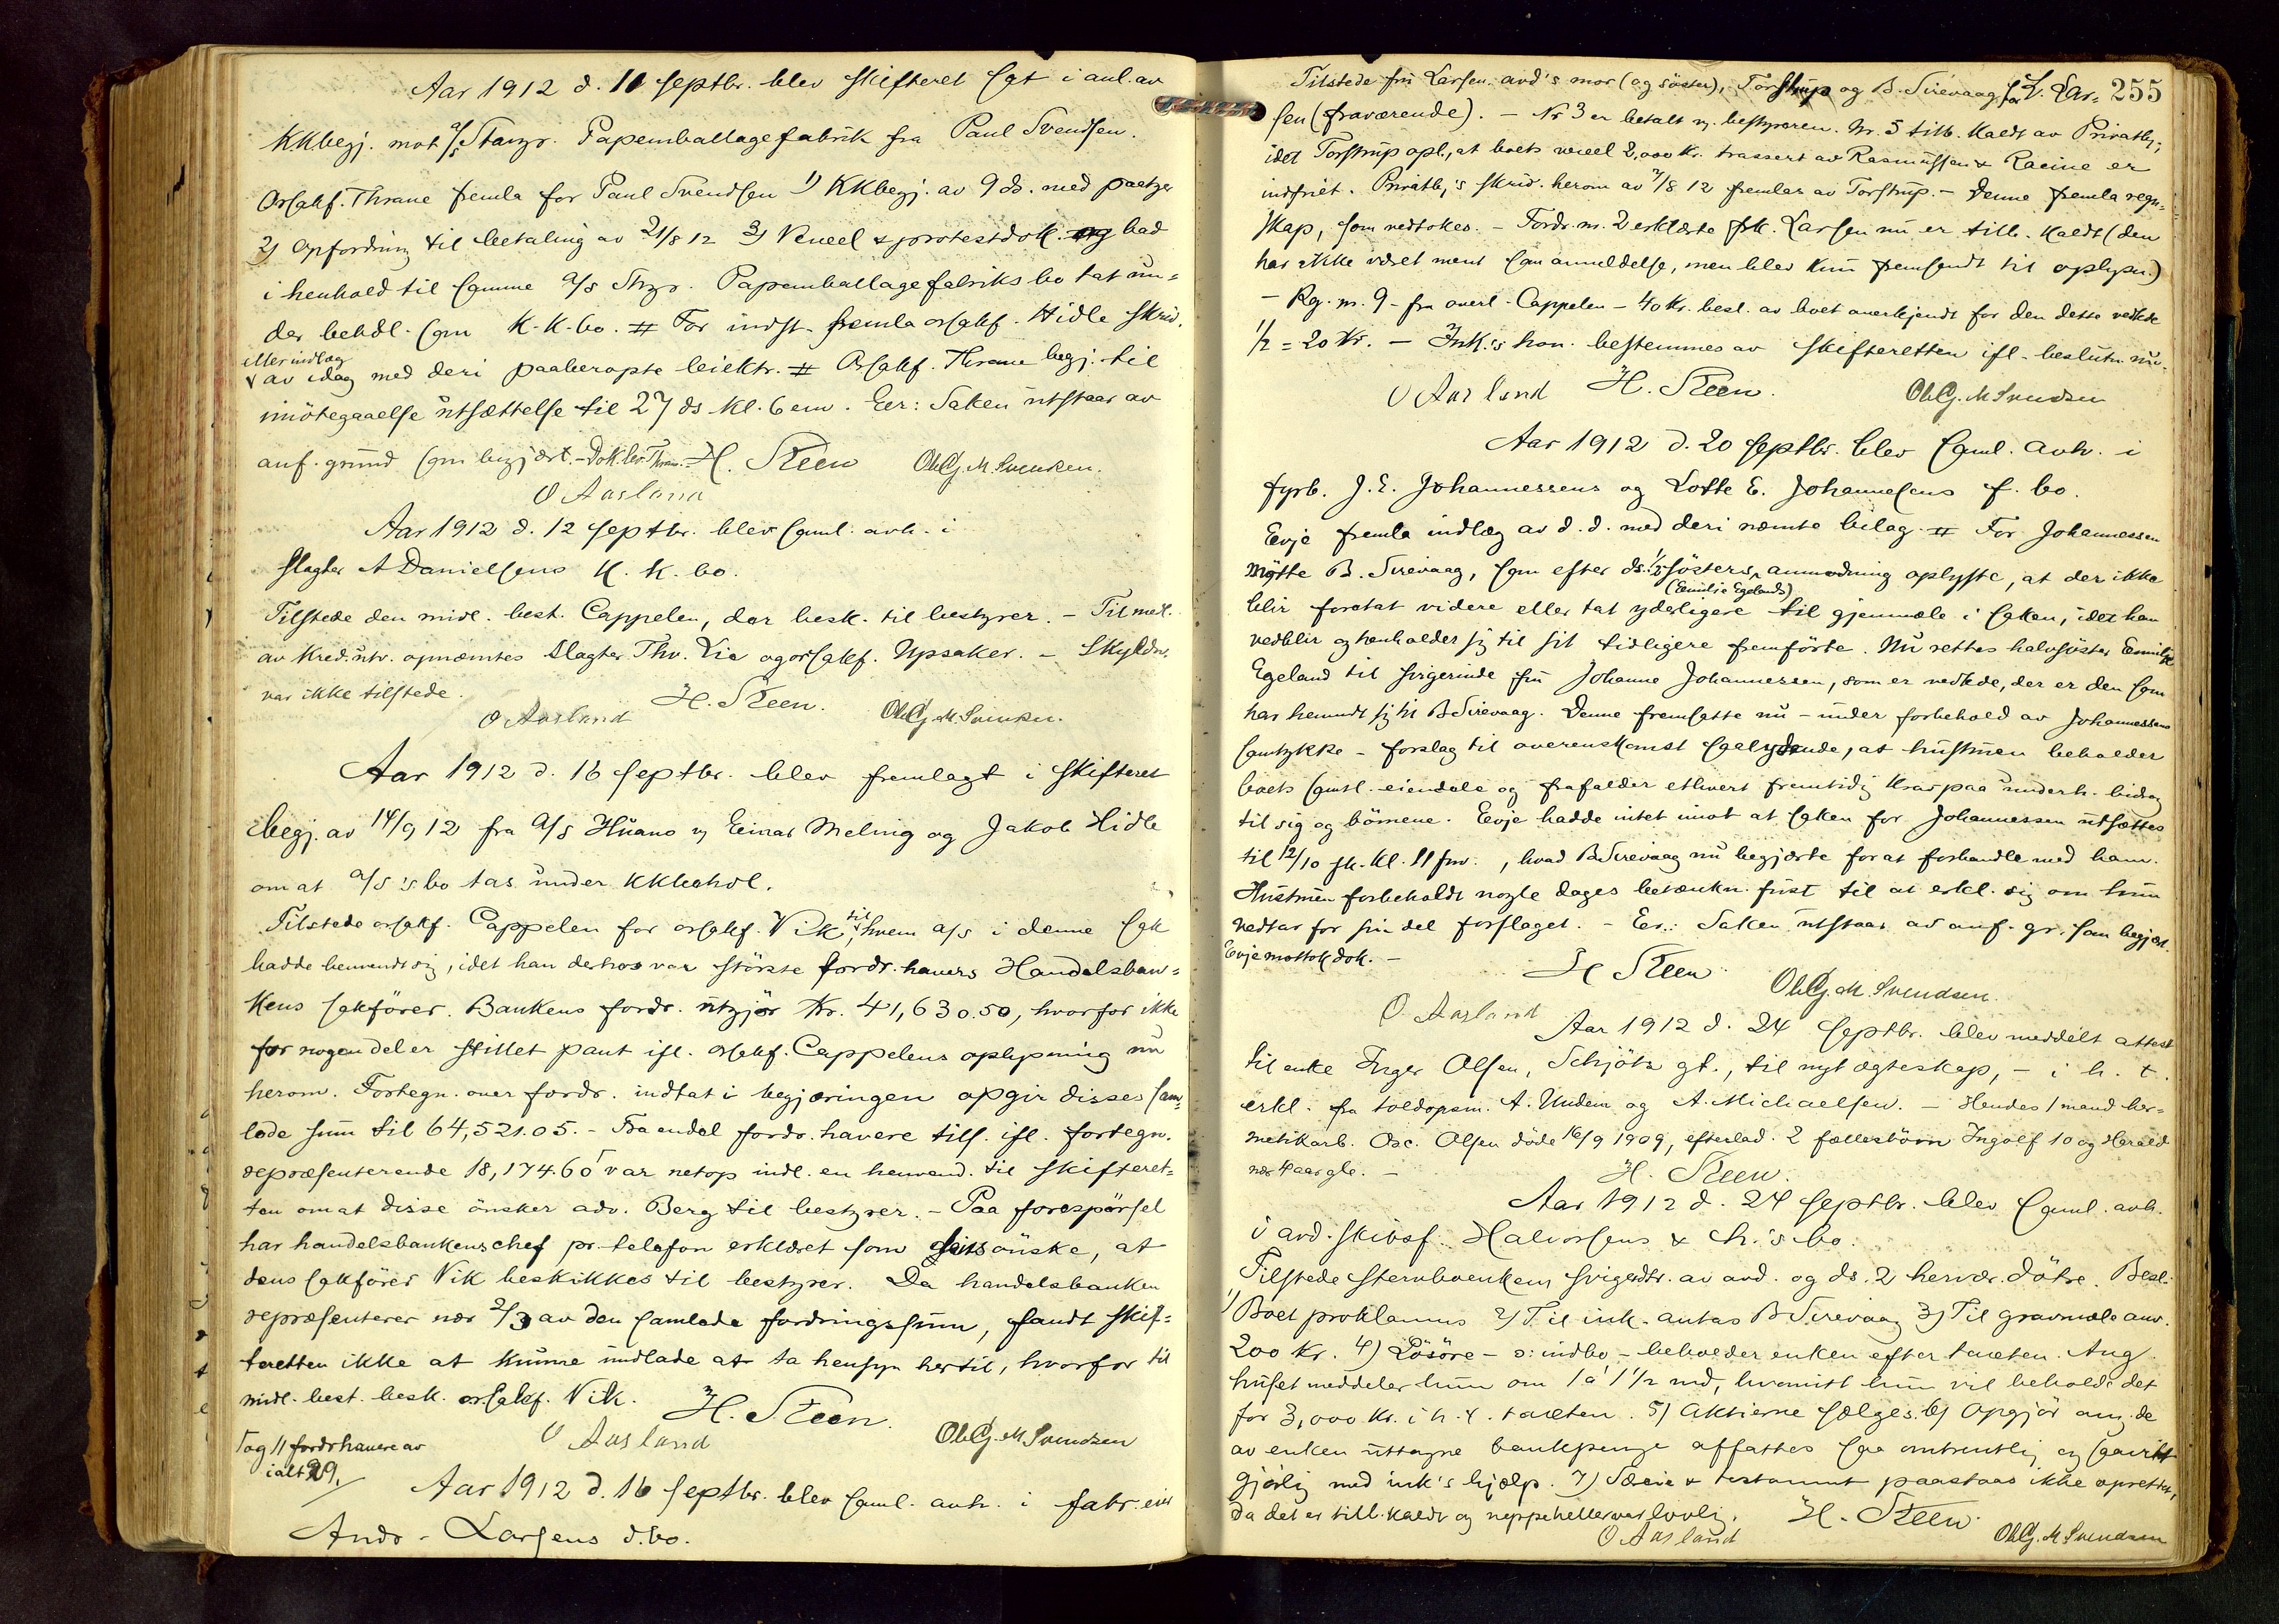 Aar 1912 d. 11 septbr. blev skifteret sat i anl. av
KKbegj. mot a/s Stavgr. Papemballagefabrik fra Paul Svendsen.
Orsakf. Thrane fremla for Paul Svendsen 1) KKbegj. av 9 ds. med paategn
2) Opfordring til betaling av 21/8 12 3) Vexel & protestdok. og bad
i henhold til samme a/s Stvgr. Papemballagefabriks bo tat un=
der behdl. som K.K.bo. # For indst. fremla orsakf. Hidle skrid.
eller indlæg
av idag med deri paaberopte leiektr. # Orsakf. Thrane begj. til
imötegaaelse utsættelse til 27 ds kl. 6 em. Eer: Saken utstaar av
anf. grund som begjært. - Dok. lev. Thrane. - H. Steen Ol. G. M. Svendsen.
O Aasland
Aar 1912 d. 12 septbr. blev saml. avh. i
slagter A Danielsens K.K. bo.
Tilstede den midl. best. Cappelen, der besk. til bestyrer. - Til medl.
av kred.utv. opnæmtes slagter Thv. Lie og orsakf. Upsaker. - Skyldn.
var ikke tilstede. H. Steen. Ol. G. M. Svendsen.
O Aasland
Aar 1912 d. 16 septbr. blev fremlagt i skifteret
begj. av 14/9 12 fra a/s Huano v/ Einar Melvig og Jakob Hidle
om at a/s's bo tas under KKbehdl.
Tilstede orsakf. Cappelen for orsakf. Vik, til hvem a/s i denne sak
hadde henvendt sig, idet han derhos var største fordr.havers Handelsban=
kens sakfører. Bankens fordr. utgjör Kr. 41,630.50, hvorfor ikke
for nogen del er stillet pant ifl. orsakf. Cappelens oplysning nu
herom. Fortegn. over fordr. indtat i begjæringen opgir disses sam=
lede sum til 64,521.05. - Fra endel fordr.havere tills. ifl. fortegn.
repræsenterende 18,174.60 var netop indl. en henvend. til skifteret=
ten om at disse ønsker adv. Berg til bestyrer. - Paa forespørsel
har handelsbankens chef pr. telefon erklæret som sit ønske, at
dens sakfører Vik beskikkes til bestyrer. Da handelsbanken
repræsenterer nær 2/3 av den samlede fordringssum, fandt skif=
teretten ikke at kunne undlade at ta hensyn hertil, hvorfor til
midl. best. besk. orsakf. Vik. H. Steen
og 11 fordrhavere av O Aasland Ol. G. M. Svendsen
ialt 29.
Aar 1912 d. 16 septbr. blev saml. avh. i fabr.eier
Andr. Larsens d.bo.
255
Tilstede fru Larsen. avd's mor (og söster), Torstrup og B. Sirevaag for L. Lar=
sen (fraværende). - Nr 3 er betalt v. bestyreren. Nr. 5 tilb. kaldt av Privatb;
idet Torstrup opl., at boets vexel 2,000 kr. trassert av Rasmussen & Racine er
indfriet. Privatb's skriv. herom av 7/8 12 fremlas av Torstrup. - Denne fremla regn=
skap, som vedtokes. - Fordr. nr. 2 erklærte frk. Larsen nu er tilb. kaldt (den
har ikke været ment som anmeldelse, men blev kun fremsendt til oplysn.)
- Rg. nr. 9 - fra overl. Cappelen - 40 Kr. besl. av boet anerkjendt for den dette vedkde
1/2 = 20 Kr. - Ink.'s hon. bestemmes av skifteretten ifl. beslutn. nu.
O Aasland H. Steen. Ol. G. M Svendsen
Aar 1912 d. 20 septbr. blev saml. avh. i
fyrb. J. E. Johannessens og Lotte E. Johannesens f. bo.
Evje fremla indlæg av d.d. med deri næmte bilag. # For Johannessen
møtte B. Sirevaag, som efter ds. 1/2 søsters anmodning oplyste, at der ikke
(Emilie Egelands)
blir foretat videre eller tat yderligere til gjenmæle i saken, idet han
vedblir og henholder sig til sit tidligere fremförte. Nu rettes halvsöster Emilie
Egeland til svigerinde fru Johanne Johannessen, som er vedkde, der er den som
har henvendt sig til B Sirevaag. Denne fremsatte nu - under forbehold av Johannessens
samtykke - forslag til overenskomst saalydende, at hustruen beholder
boets samtl. eiendele og frafalder ethvert fremtidig krav paa underh. bidrag
til sig og börnene. Evje hadde intet imot at saken for Johannessen utsættes
til 12/10 ft. Kl. 11 fm., hvad B Sirevaag nu begjærte for at forhandle med ham.
Hustruen forbeholdt nogle dages betænkn. frist til at erkl. sig om hun
vedtar for sin del forslaget. - Eer.: Saken utstaar av anf. gr. som begjært.
Evje mottok dok. - H Steen Ol. G. M. Svendsen.
O. Aasland
Aar 1912 d. 24 septbr. blev meddelt attest
til enke Inger Olsen, Schjötz gt., til nyt ægteskap, - i h. t.
erkl. fra toldopsm. A. Undem og A. Michaelsen. - Hendes 1 mand her=
metikarb. Osc. Olsen döde 16/9 1909, efterlad. 2 fællesbörn Ingolf 10 og Harald
nær 4 aar gle. - H. Steen.
Aar 1912 d. 24 septbr. blev saml. avh.
i avd. skibsf. Halvorsens & h.'s bo.
Tilstede stervboenken, svigerdtr. av avd. og ds. 2 hervær. døtre. Besl.
1) Boet proklamus 2) Til ink. antas B Sirevaag 3) Til gravmæle anv.
200 kr. 4) Lösöre - o: indbo - beholder enken efter taxten. Ang.
huset meddeler hun om 1 à 1 1/2 md, hvorvidt hun vil beholde det
for 3,000 kr. i h. t. taxten. 5) Aktierne sælges. 6) Opgjör ang. de
av enken uttagne bankpenge affattes saa omtrentlig og saavidt
gjørlig med ink's hjælp. 7) Særeie & testament paastaas ikke oprettet,
da det er tilb. kaldt og neppe heller var lovlig. H. Steen.
O Aasland Ol. G. M Svendsen